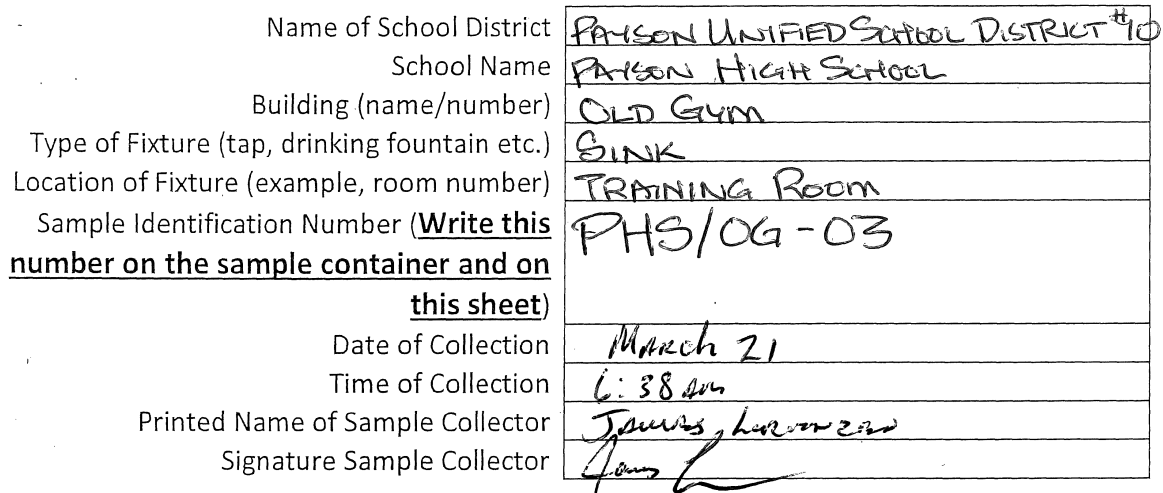 Name of School District PAYSON UNIFIED SCHOOL DISTRICT #10
School Name PAYSON HIGH SCHOOL
Building (name/number) OLD GYM
Type of Fixture (tap, drinking fountain etc.) SINK
Location of Fixture (example, room number) TRAINING ROOM
Sample Identification Number (Write this PHS/OG-03
number on the sample container and on
this sheet)
Date of Collection March 21
Time of Collection 6:38 am
Printed Name of Sample Collector James
Signature Sample Collector